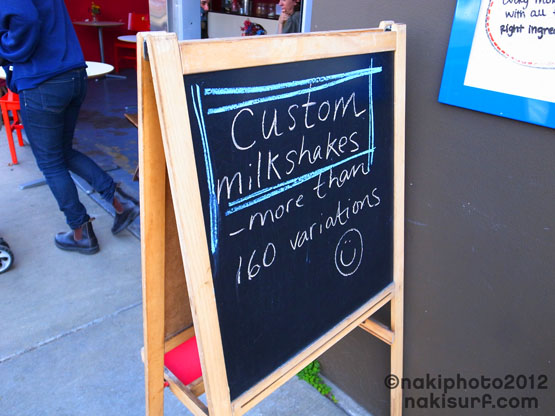 Custom
milkshakes
- more than
160 variations
with all
Right ingre
©nakiphoto2012
nakisurf.com